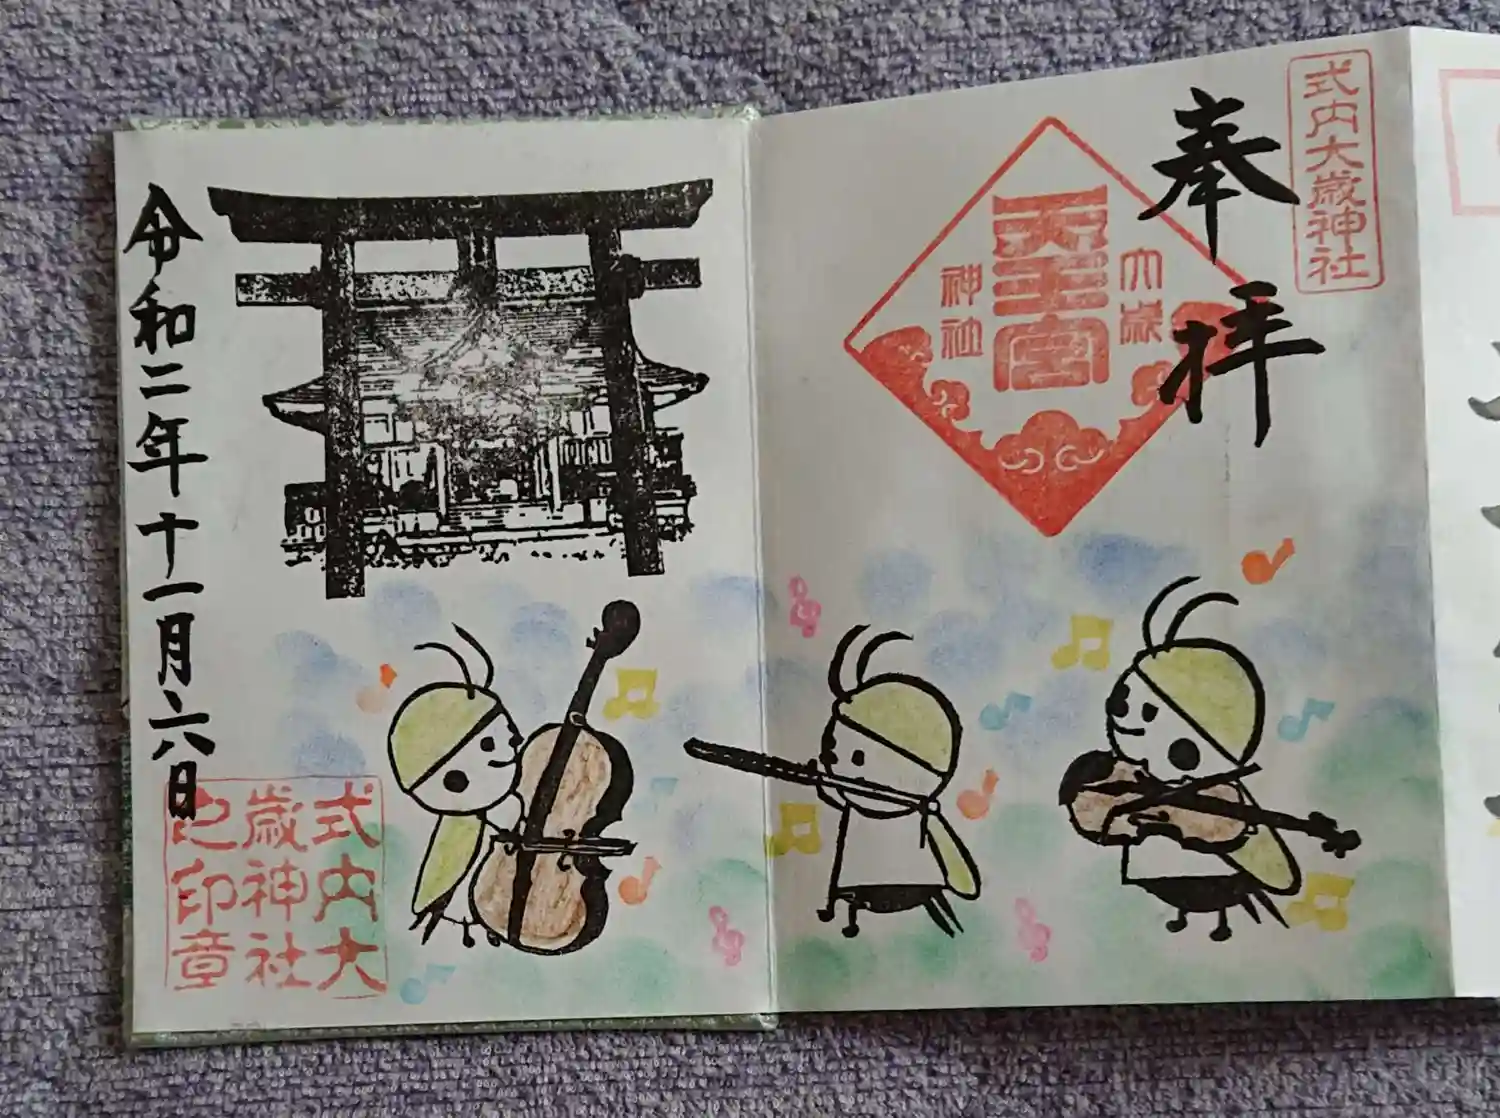 式内大歳神社
奉拝
大歳
天王宮
神社
令和二年十一月六日
式内大
歳神社
之印章